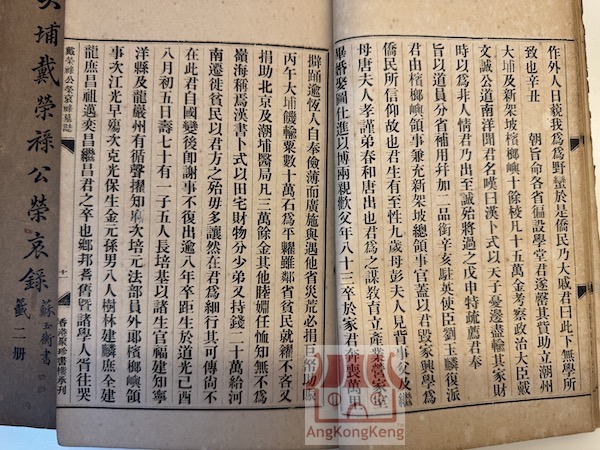 作外人日藐我為為野蠻於是僑民乃大慼君曰此下無學所
致也辛丑 朝旨命各省偏設學堂君遂罄其貲助立潮州
大埔及新架坡檳榔嶼十餘校凡十五萬金考察政治大臣戴
文誠公道南洋聞君名嘆曰漢卜式以天子憂邊盡輸其家財
時以為非人情君乃出至誠殆將過之戊申特疏薦君奉
旨以道員分省補用幷加二品銜辛亥駐英使臣劉玉麟復派
君由檳榔嶼領事兼充新架坡總領事官蓋以君毀家興學為
僑民所信仰故也君生有至性九歲母彭夫人見背事父及繼
母唐夫人孝謹弟春和唐出也君為之謀教育立產業營家室
畢婚娶圖仕進以博兩親歡父年八十三卒於家君奔喪萬里
擗踊逾恆人自奉儉薄而廣施與遇他省災荒必捐巨帑助賑
丙午大埔饑輸粟數十萬石為平糶雖鄰省貧民就糴不吝又
捐助北京及潮埔醫局凡三萬餘金其他睦婣任恤知無不為
嶺海稱為漢書卜式以田宅財物分少弟又持錢二十萬給河
南遷徙貧民以君方之殆毋多讓然在君為細行其可傳尚不
在此君自國變後即謝事不復出逾八年卒距生於道光己酉
八月初五日壽七十有一子五人長培基以諸生官福建知寧
洋縣及龍巖州有循聲擢知府次培元法部員外郎檳榔嶼領
事次江光早殤次克光保生金元孫男八人樹林建麟庶全建
龍庶昌祖邁奕昌繼昌君之卒也鄉邦耆舊暨諸學人胥往哭
戴榮祿公榮哀錄墓誌
十一
香港聚珍書樓承刊
大埔戴榮祿公榮哀錄
蘇玉衡書
籤 二冊
AngKongKeng